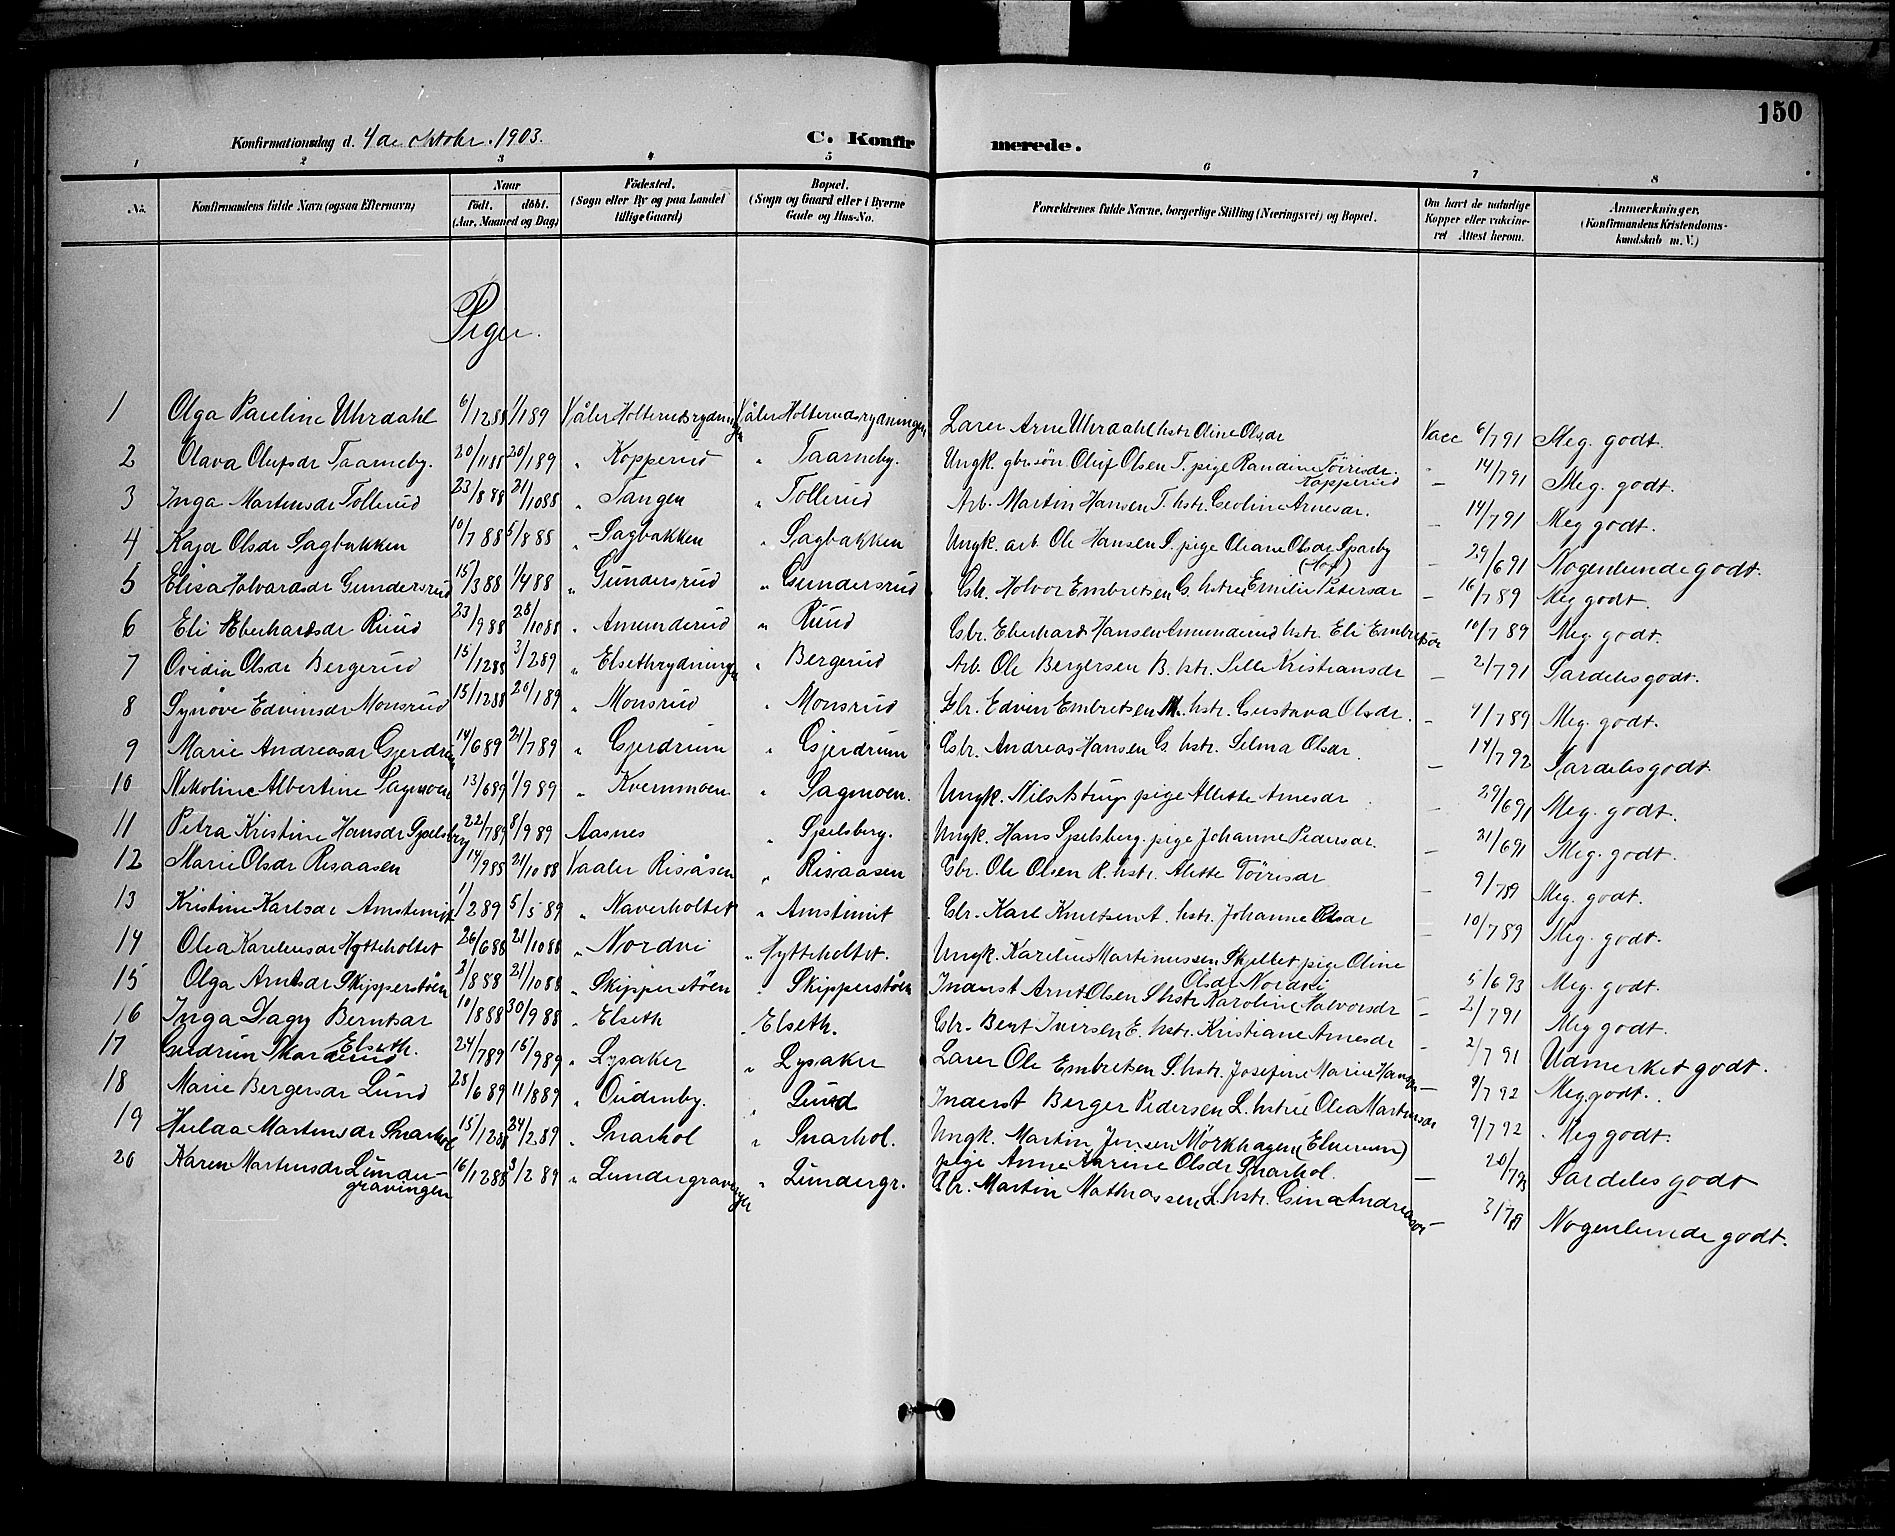 150
Konfirmationsdag d. 4de oktobr. 1903. C. Konfirmerede.
1 2 3 4 5 6 7 8
No. Konfirmandens fulde Navn (ogsaa Efternavn) Naar Födt. döbt. (Aar, Maaned og Dag) Födested. (Sogn eller By og paa Landet tillige Gaard) Bopæl. (Sogn og Gaard eller i Byerne Gade og Hus-No. Forældrenes fulde Navne, borgerlige Stilling (Næringsvei) og Bopæl. Om havt de naturlige Kopper eller vakcineret Attest herom. Anmærkninger, (Konfirmandens Kristendomskundskab m. V.)
Piger.
1 Olga Pauline Uhrdahl 6/12 88 1/1 89 Våler Holterudsrydningen Våler Holterudsrydningen Lærer Arne Uhrdahl hstr Oline Olsdr Vacc 6/7 91 Meg. godt.
2 Olava Olufsdr Taarneby. 20/11 88 20/1 89 " Kopperud " Taarneby. Ungk. gbr.sön Oluf Olsen T. pige Randine Töirisdr. Kopperud - 14/7 91 Meg. godt.
3 Inga Martinsdr Tollerud 23/8 88 21/10 88 " Tangen " Tollerud Arb. Martin Hansen T. hstr. Arnesdr. - 14/7 91 Meg godt.
4 Kaja Olsdr Sagbakken 10/7 88 5/8 88 " Sagbakken " Sagbakken Ungk. arb. Ole Hansen S. pige Oleane Olsdr Sparby (Hof) - 29/6 91 Nogenlunde godt.
5 Elisa Halvorsdr Gundersrud 15/3 88 1/4 88 " Gundersrud " Gundersrud Gbr. Holvor Embretsen G. hstru Emilie Petersdr - 16/7 89 Meg godt.
6 Eli Eberhardsdr Ruud 23/9 88 28/10 88 " Amunderud " Ruud Gbr. Eberhard Hansen Amunderud hstr. Eli Embretsdr 10/7 89 Meg. godt.
7 Ovidia Olsdr Bergerud 15/12 88 3/2 89 " Elsethrydningen " Bergerud Arb. Ole Bergersen B. hstr. Sille Kristiansdr - 2/7 91 Særdeles godt.
8 Synöve Edvinsdr Monsrud 15/12 88 20/1 89 " Monsrud " Monsrud Gbr. Edvin Embretsen M. hstr. Gustava Olsdr. - 4/7 89 Meg. godt.
9 Marie Andreasdr Gjerdrum 14/6 89 21/7 89 " Gjerdrum " Gjerdrum Gbr. Andreas Hansen G. hstr. Selma Olsdr. - 14/7 92 Særdeles godt.
10 Nikoline Albertine Sagmoen 13/6 89 1/9 89 " Kvernmoen " Sagmoen. Ungk. Nils Astrup pige Alette Arnesdr - 29/6 91 Meg. godt.
11 Petra Kristine Hansdr Spelsberg 22/7 89 8/9 89 Aasnes " Spelsberg. Ungk. Hans Spelsberg. pige Johanne Pedersdr. - 21/6 91 Meg. godt.
12 Marie Olsdr Risaasen 14/9 88 21/10 88 Vaaler Risåsen " Risaasen Gbr. Ole Olsen R. hstr. Alette Töirisdr - 9/7 89 Meg. godt.
13 Kristine Karlsdr Amstimit 1/2 89 5/5 89 " Naverholtet " Amstimit Gbr. Karl Knutsen A. hstr. Johanne Olsdr - 10/7 89 Meg. godt.
14 Olea Kareliusdr Hytteholtet 26/6 88 21/10 88 " Nordvi " Hytteholtet. Ungk. Karelius Martinussen Skjellet pige Oline Olsdr Nordvi - 5/6 93 Meg. godt.
15 Olga Arntsdr Skipperstöen 2/8 88 21/10 88 " Skipperstöen " Skipperstöen Inderst Arnt Olsen S hstr Karoline Halvorsdr - 2/7 91 Meg godt.
16 Inga Dagny Berntsdr Elseth. 10/8 88 30/9 88 " Elseth " Elseth. Gbr. Bernt Iversen E. hstr. Kristiane Arnesdr - 2/7 91 Udmerket godt.
17 Gudrun Skarderud 24/7 89 15/9 89 " Lysaker " Lysaker Lærer Ole Embretsen S. hstr. Josefine Marie Hansdr - 9/7 92 Meg godt.
18 Marie Bergersdr Lund 28/6 89 11/8 89 " Oudenby. " Lund Inderst Berger Pedersen L. hstru Olea Martinsdr 9/7 92 Meg godt.
19 Hulda Martinsdr Snarhol 15/12 88 24/2 89 " Snarhol " Snarhol. Ungk. Martin Jensen Mörkhagen (Elverum) pige Anne Karine Olsdr Snarhol. - 20/7 93 Særdeles godt
20 Karen Martinsdr Lundergravingen 16/12 88 3/2 89 " Lundergravingen " Lundergr. Gbr. Martin Mathiassen L. hstr. Gina Andreasdr - 3/7 89 Nogenlunde godt.